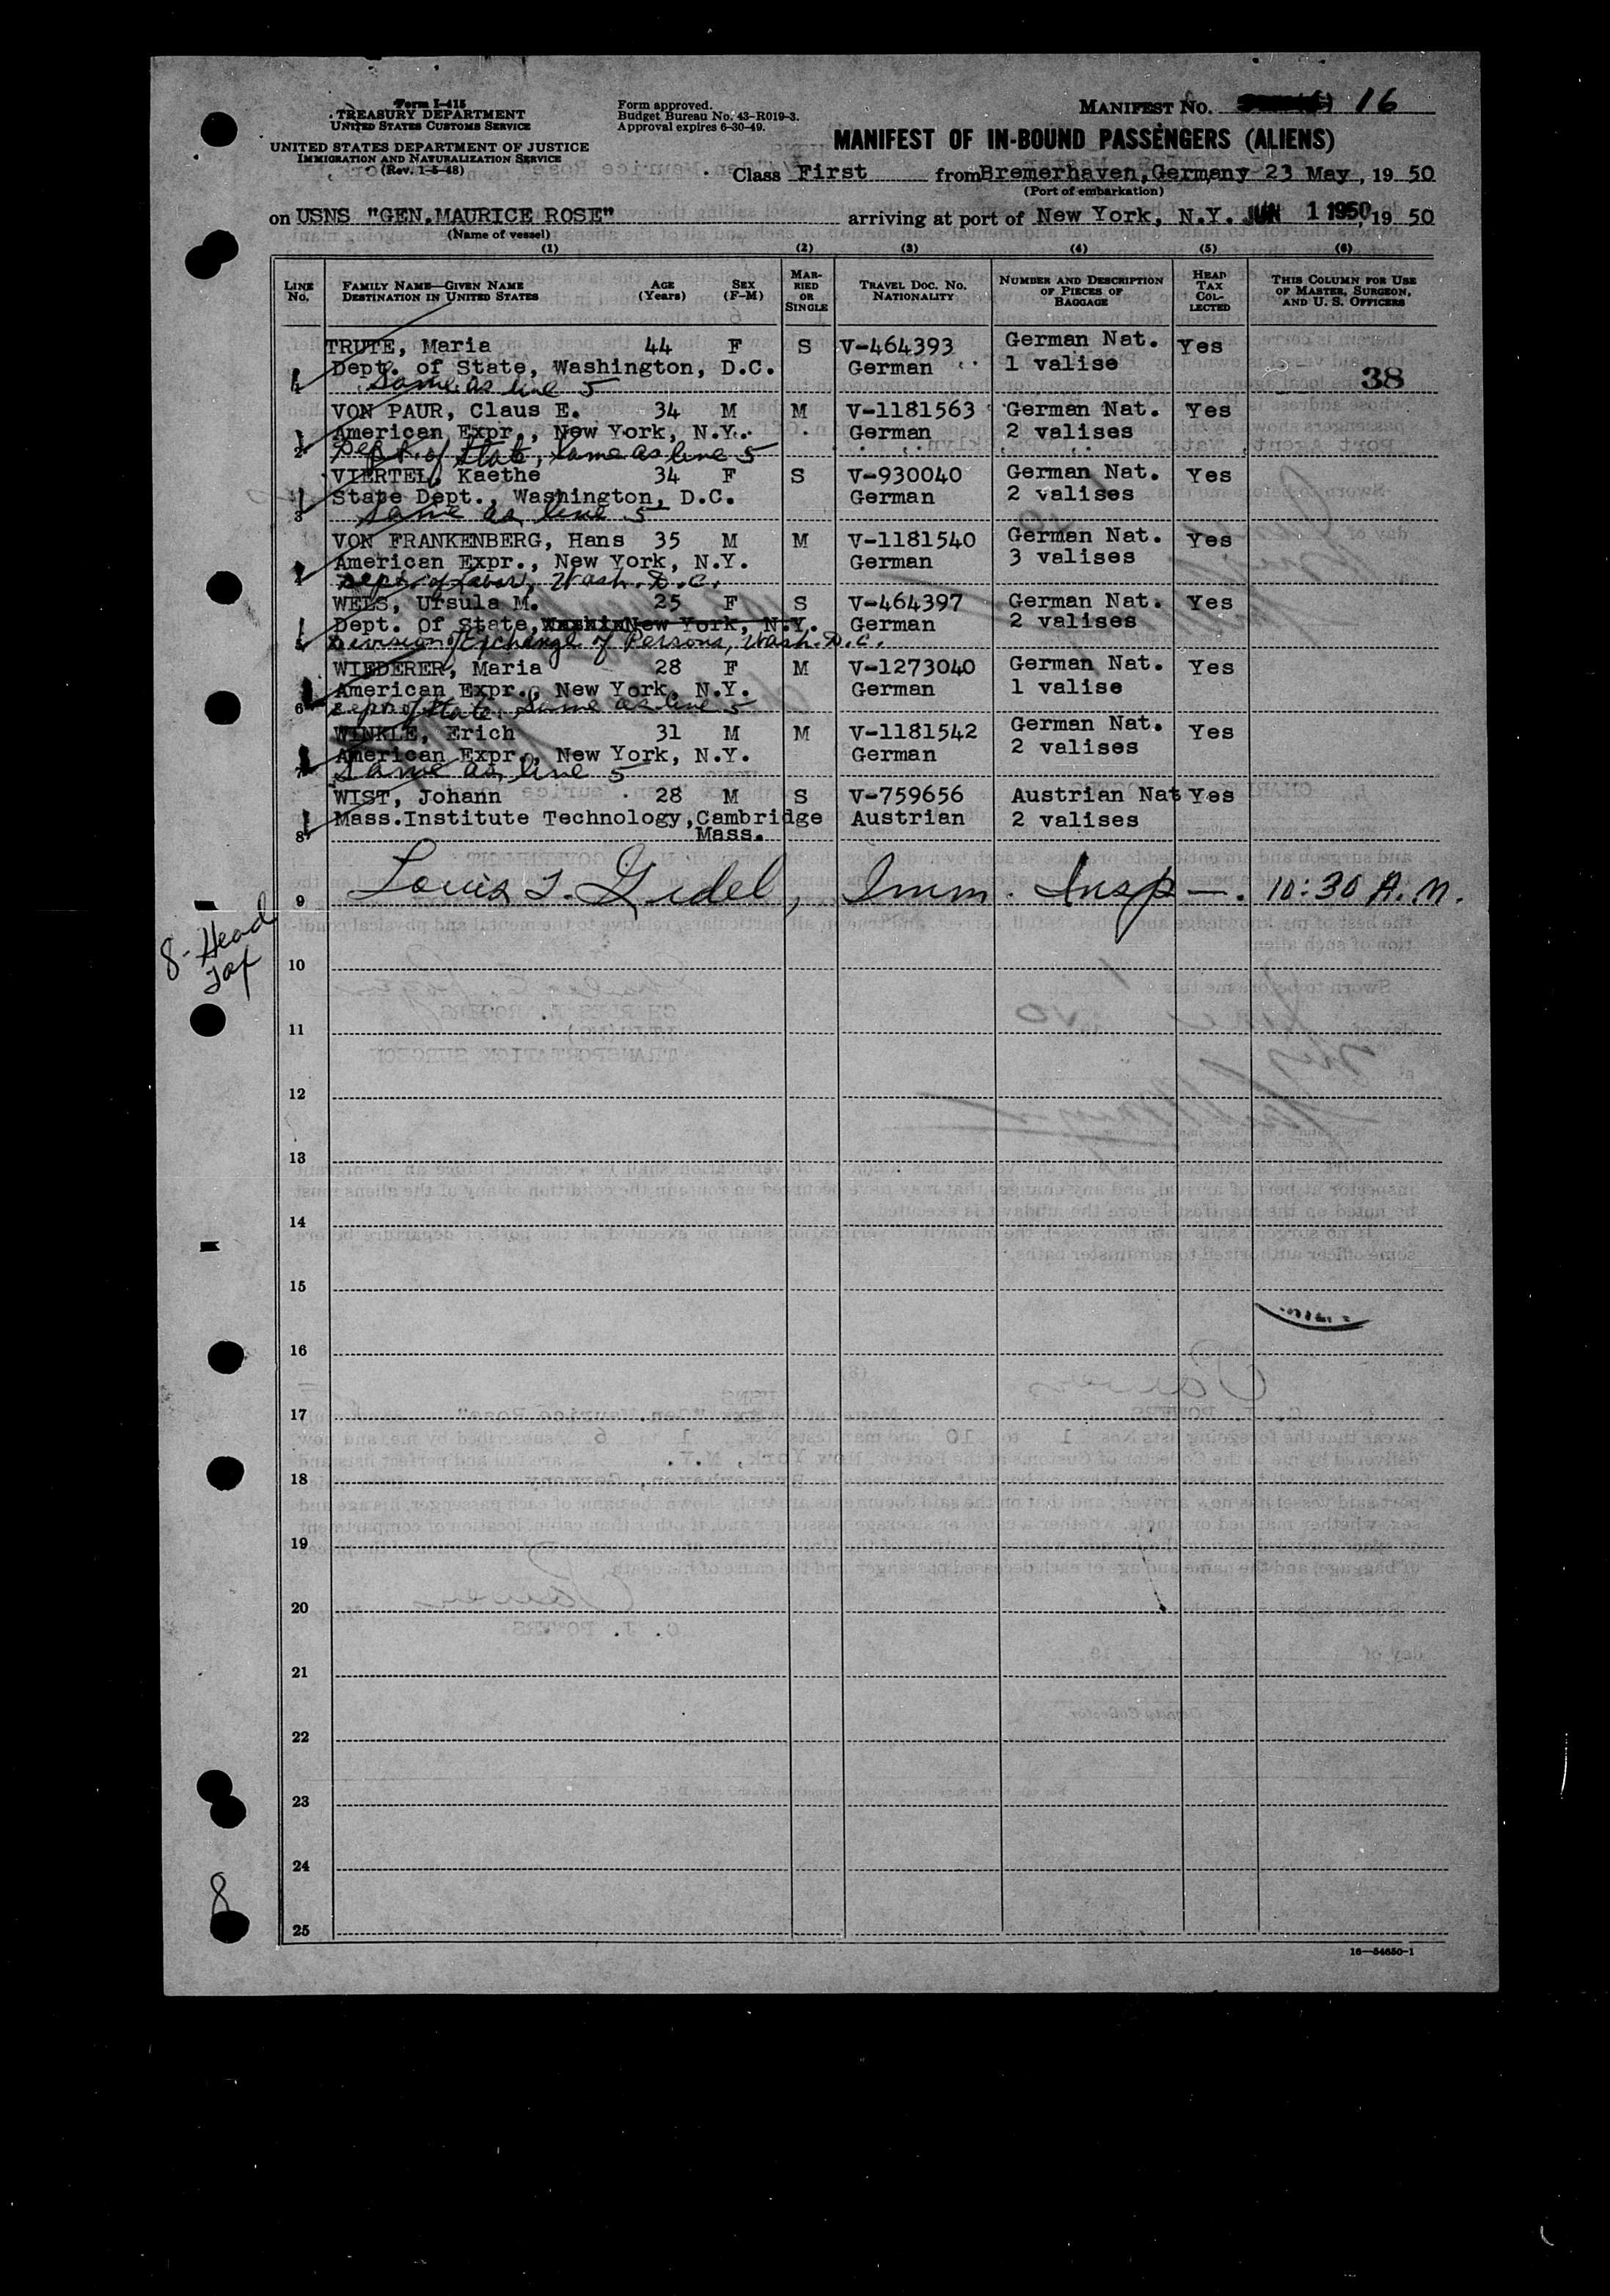 Form I-415
TREASURY DEPARTMENT
UNITED STATES CUSTOMS SERVICE
UNITED STATES DEPARTMENT OF JUSTICE
IMMIGRATION AND NATURALIZATION SERVICE
(Rev. 1-5-48)
Form approved.
Budget Bureau No. 43-R019-3.
Approval expires 6-30-49.
MANIFEST NO. 16
MANIFEST OF IN-BOUND PASSENGERS (ALIENS)
Class First from Bremerhaven, Germany 23 May, 19 50
(Port of embarkation)
on USNS "GEN.MAURICE ROSE" arriving at port of New York, N.Y. JUN 1 1950, 19 50
(Name of vessel)
(1) (2) (3) (4) (5) (6)
LINE No. FAMILY NAME—GIVEN NAME DESTINATION IN UNITED STATES AGE (Years) SEX (F-M) MARRIED OR SINGLE TRAVEL DOC. NO. NATIONALITY NUMBER AND DESCRIPTION OF PIECES OF BAGGAGE HEAD TAX COLLECTED THIS COLUMN FOR USE OF MASTER, SURGEON, AND U. S. OFFICERS
TRUTE, Maria 44 F S V-464393 German Nat. Yes
1 Dept. of State, Washington, D.C. German 1 valise 38
Same as line 5
VON PAUR, Claus E. 34 M M V-1181563 German Nat. Yes
2 American Expr., New York, N.Y. German 2 valises
Dept. of State, Same as line 5
VIERTEL, Kaethe 34 F S V-930040 German Nat. Yes
3 State Dept., Washington, D.C. German 2 valises
Same as line 5
VON FRANKENBERG, Hans 35 M M V-1181540 German Nat. Yes
American Expr., New York, N.Y. German 3 valises
Dept. of Labor, Wash. D.C.
WELS, Ursula M. 25 F S V-464397 German Nat. Yes
Dept. Of State, New York, N.Y. German 2 valises
Division of Exchange of Persons, Wash. D.C.
WIEDERER, Maria 28 F M V-1273040 German Nat. Yes
6 American Expr., New York, N.Y. German 1 valise
Dept. of State. Same as line 5
WINKLE, Erich 31 M M V-1181542 German Nat. Yes
American Expr., New York, N.Y. German 2 valises
Same as line 5
WIST, Johann 28 M S V-759656 Austrian Nat Yes
8 Mass.Institute Technology, Cambridge Austrian 2 valises
Mass.
9 Louis T. Gidel, Imm. Insp—. 10:30 A.M.
8- Head
Tax
10
11
12
13
14
15
16
17
18
19
20
21
22
23
24
8
25
16—54650-1